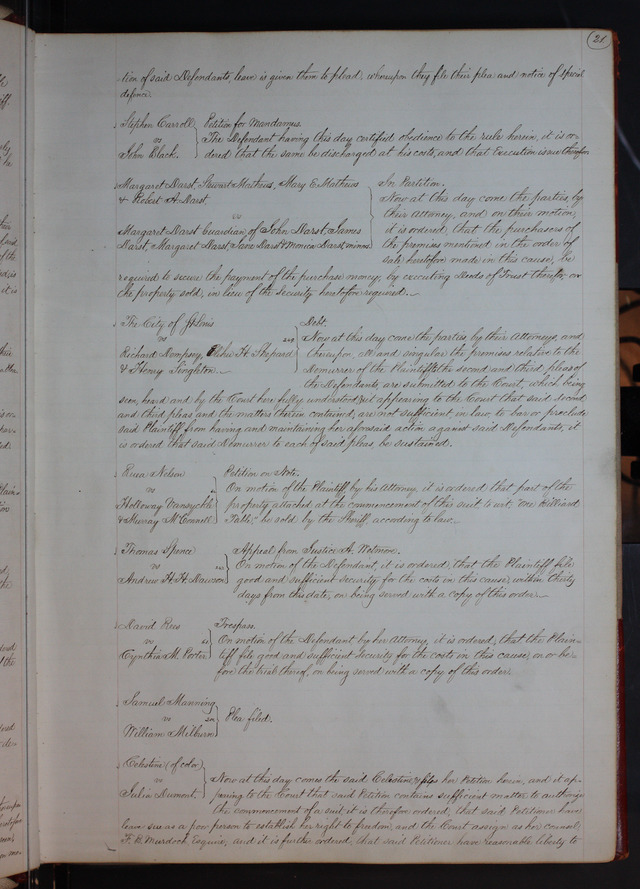 21.
tion of said Defendants, leave is given them to plead, whereupon they file their plea and notice of special
defence.
Stephen Carroll } Petition for Mandamus.
vs The Defendant having this day certified obedience to the rule herein, it is or-
John Black. dered that the same be discharged at his costs, and that Execution issue therefor.
Margaret Darst, Stewart Matheus, Mary E. Matheus } In Partition.
& Robert A. Darst Now at this day come the parties, by
vs their attorney, and on their motion,
Margaret Darst Guardian of John Darst, James it is ordered, that the purchasers of
Darst, Margaret Darst, Jane Darst & Monica Darst, minors the premises mentioned in the order of
sale heretofore made in this cause, be
required to secure the payment of the purchase money, by executing Deeds of Trust therefor on
the property sold, in lieu of the security heretofore required.
The City of St Louis } Debt.
vs Now at this day come the parties by their Attorneys, and
Richard Dempsey, Elihu H. Shepard thereupon, all and singular the premises relative to the
& Henry Singleton. Demurrer of the Plaintiff to the second and third pleas of
the Defendants are submitted to the Court, which being
seen, heard and by the Court here fully understood, & it appearing to the Court that said second
and third pleas and the matters therein contained, are not sufficient in law, to bar or preclude
said Plaintiff from having and maintaining her aforesaid action against said Defendants, it
is ordered that said Demurrer to each of said pleas, be sustained.
Nelson } Petition on Note.
vs On motion of the Plaintiff by his Attorney, it is ordered that part of the
Holloway Vansyckle property attached at the commencement of this suit to wit, "one Billiard
& Murray McConnell Table," be sold by the Sheriff, according to law.
Thomas Spence } Appeal from Justice A. Wetmore.
vs On motion of the Defendant, it is ordered, that the Plaintiff file
Andrew H. H. Dawson good and sufficient security for the costs in this cause, within thirty
days from this date, on being served with a copy of this order.
David Rees } Trespass.
vs On motion of the Defendant by her Attorney, it is ordered, that the Plain-
Cynthia M. Porter tiff file good and sufficient security for the costs in this cause, on or be-
fore the trial thereof, on being served with a copy of this order.
Samuel Manning
vs } Plea filed.
William Milburn
Celestine (of color)
vs } Now at this day comes the said Celestine, & files her Petition herein, and it ap-
Julia Dumont. pearing to the Court that said Petition contains sufficient matter to authorize
the commencement of a suit, it is therefore ordered, that said Petitioner have
leave sue as a poor person to establish her right to freedom, and the Court assign as her counsel,
F. B. Murdoch, Esquire, and it is further ordered, that said Petitioner have reasonable liberty to